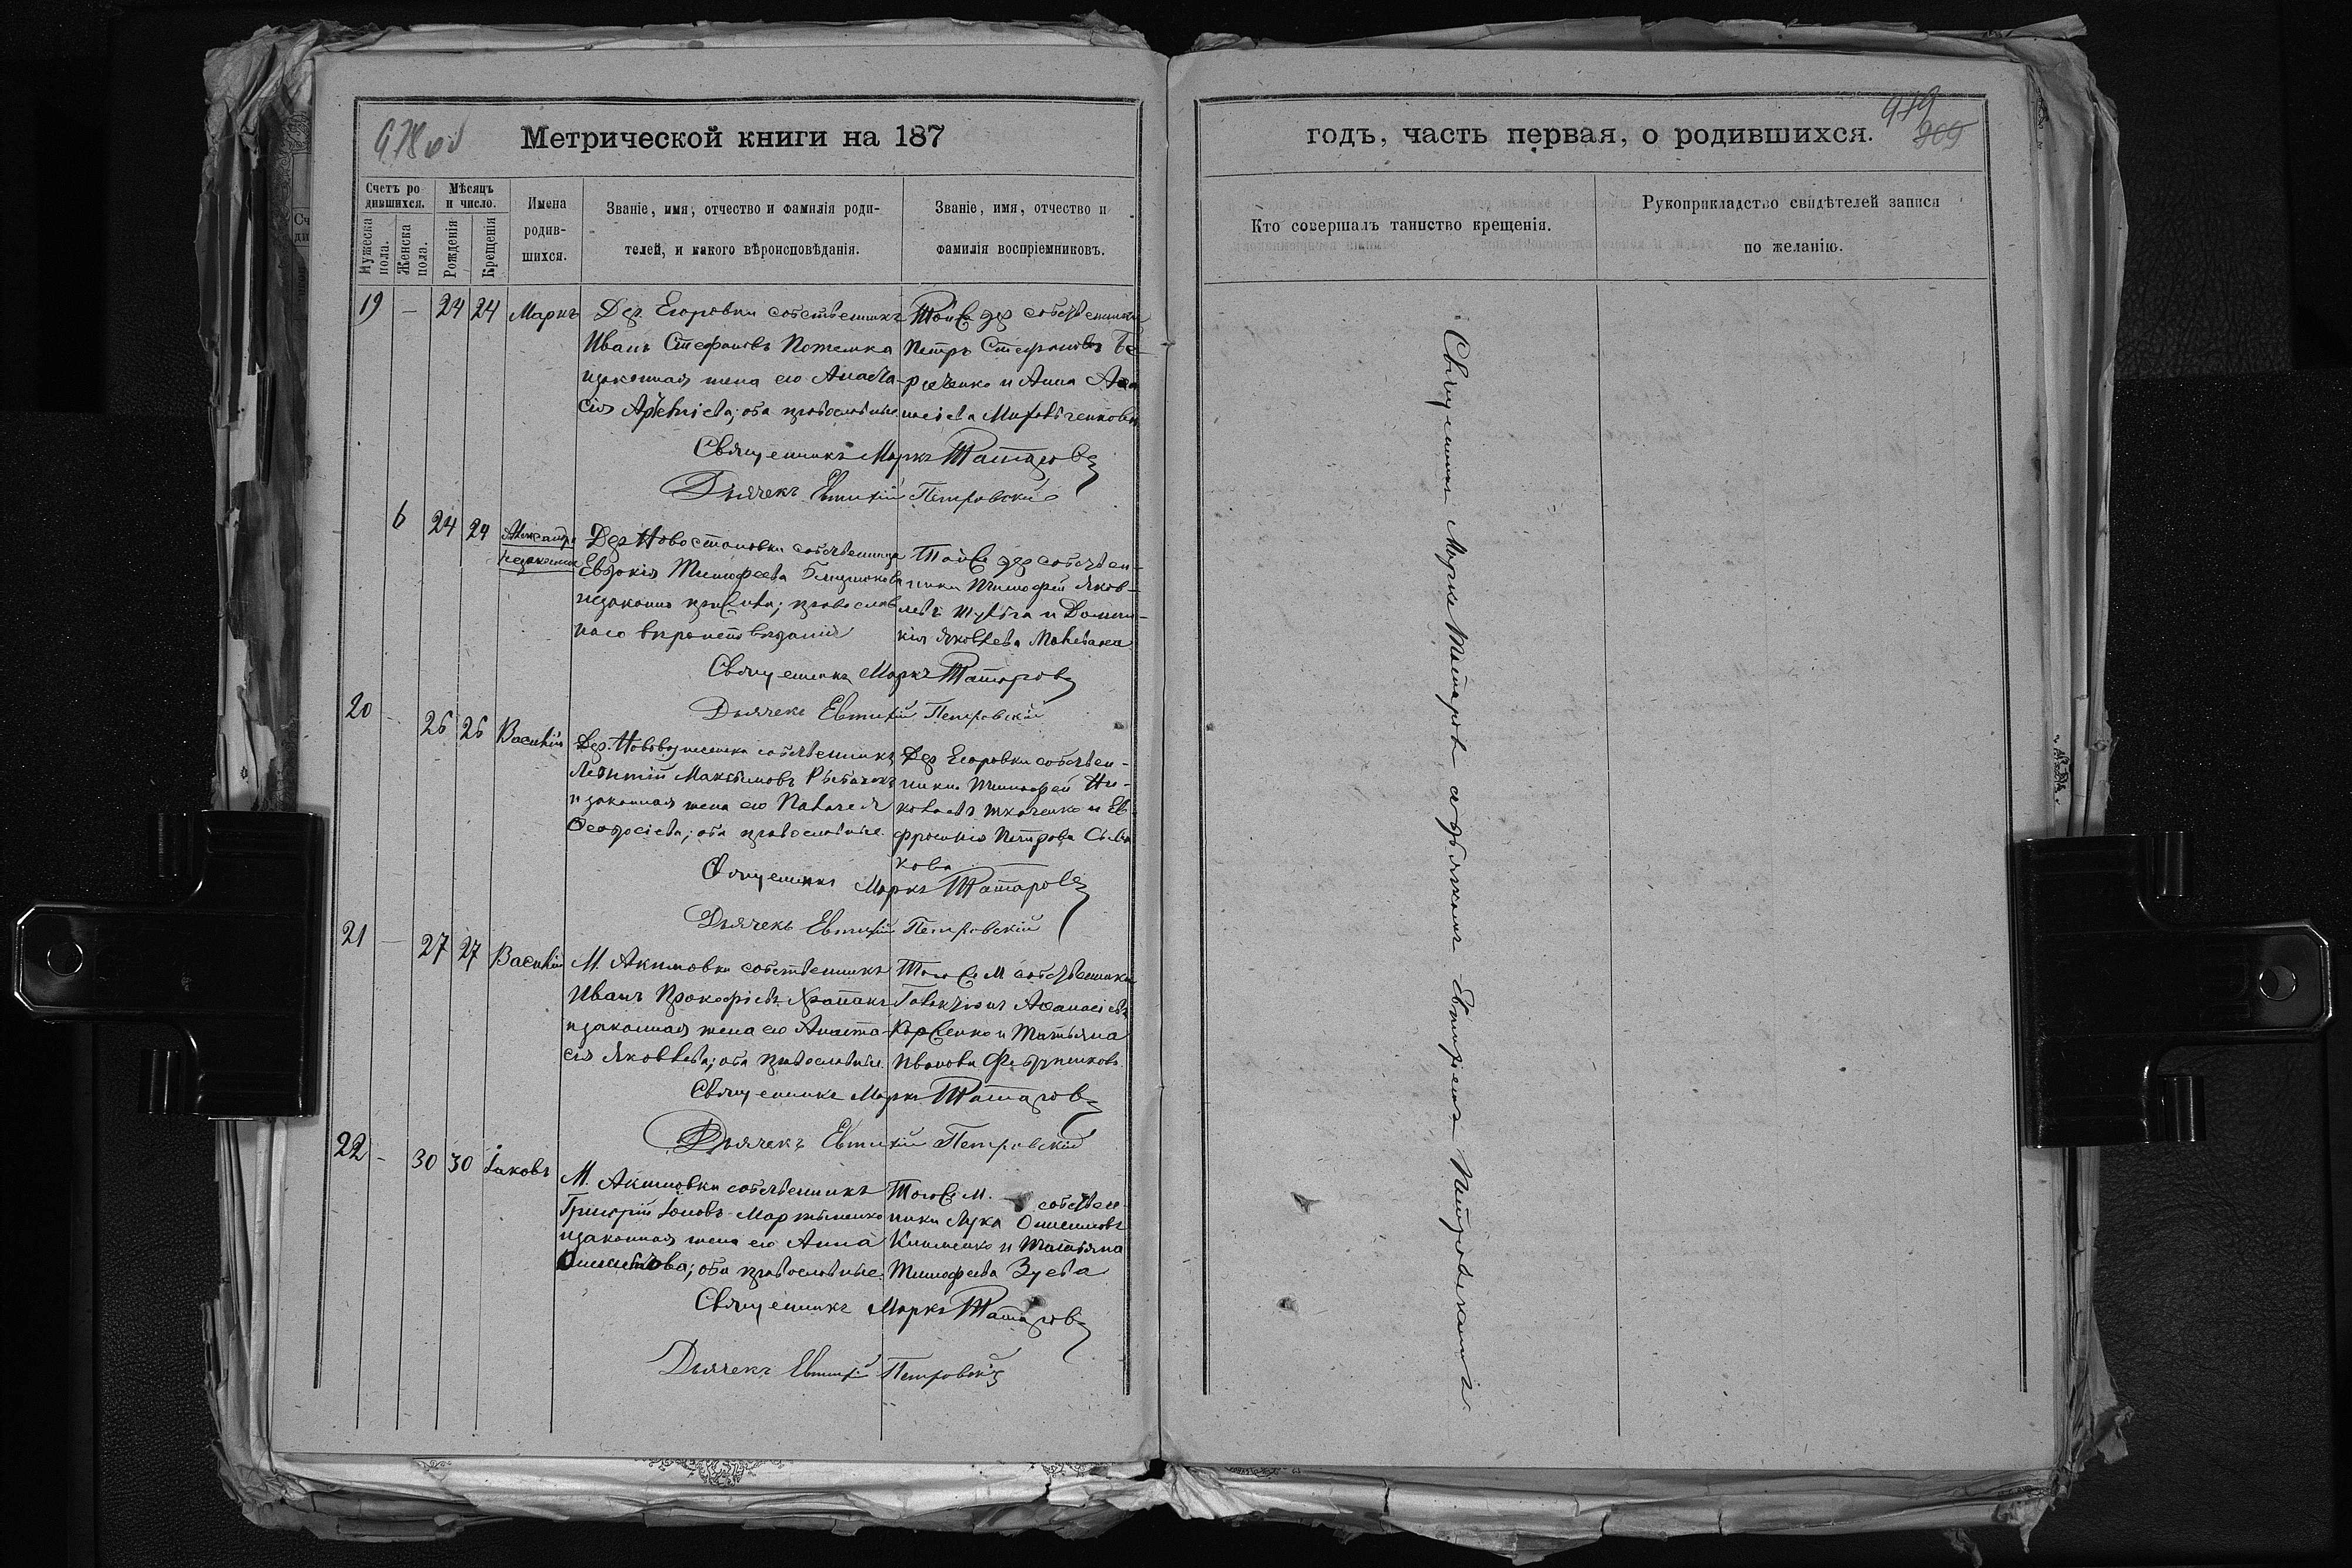 978 об
Метрической книги на 187
Счетъ ро
дившихся.
Мѣсяцъ
и число.
Имена
родив-
шихся.
Званіе, имя, отчество и фамилія роди-
телей, и какого вѣроисповѣданія.
Званіе, имя, отчество и
фамилія воспріемниковъ.
Мужеска
пола.
Женска
пола.
Рожденія
Крещенія
19 — 24 24 Маркъ
Дер. Егоровки собственникъ
Иванъ Стефановъ Потемка
и законная жена его Анаста-
сія ; оба православные
Тойже дер собственники
Петръ Стефановъ
и Анна
Священникъ Маркъ Татаровъ
Дьячекъ Евтихій Петровскій
6 24 24 Александра
незаконная
Дер Новостановки собственница
Евдокія Тимофеева
незаконно прижила; православ
наго вероисповеданія
Тойже дер собствен-
ники Тимофей Яков-
левъ и Домни-
кія Яковлева
Священникъ Маркъ Татаровъ
Дьячекъ Евтихій Петровскій
20 — 26 26 Василій
Дер. собственникъ
Леонтій Максимовъ
и законная жена его Пелагея
Феодосіева; оба православные.
Дер Егоровки собствен-
ники Тимофей Ни-
колаевъ Ткаченко и Ев-
фросинія Петрова
кова
Священникъ Маркъ Татаровъ
Дьячекъ Евтихій Петровскій
21 — 27 27 Василій
М. Акимовки собственникъ
Иванъ Прокофіевъ Храпакъ
и законная жена его Анаста-
сія Яковлева; оба православные.
Тогоже М собственники
Афанасіевъ
и Татьяна
Иванова
Священникъ Маркъ Татаровъ
Дьячекъ Евтихій Петровскій
22 — 30 30 Іаковъ
М. Акимовки собственникъ
Григорій Іоновъ Мартыненко
и законная жена его Анна
; оба православные.
Тогоже М. собствен-
ники Лука
Клименко и Татьяна
Тимофеева Зуева
Священникъ Маркъ Татаровъ
Дьячекъ Евтихій Петровскій
годъ, часть первая, о родившихся.
979
909
Кто совершалъ таинство крещенія.
Рукоприкладство свидѣтелей записи
по желанію.
Священникъ Маркъ Татаровъ съ дьячкомъ Евтихіемъ Петровскимъ